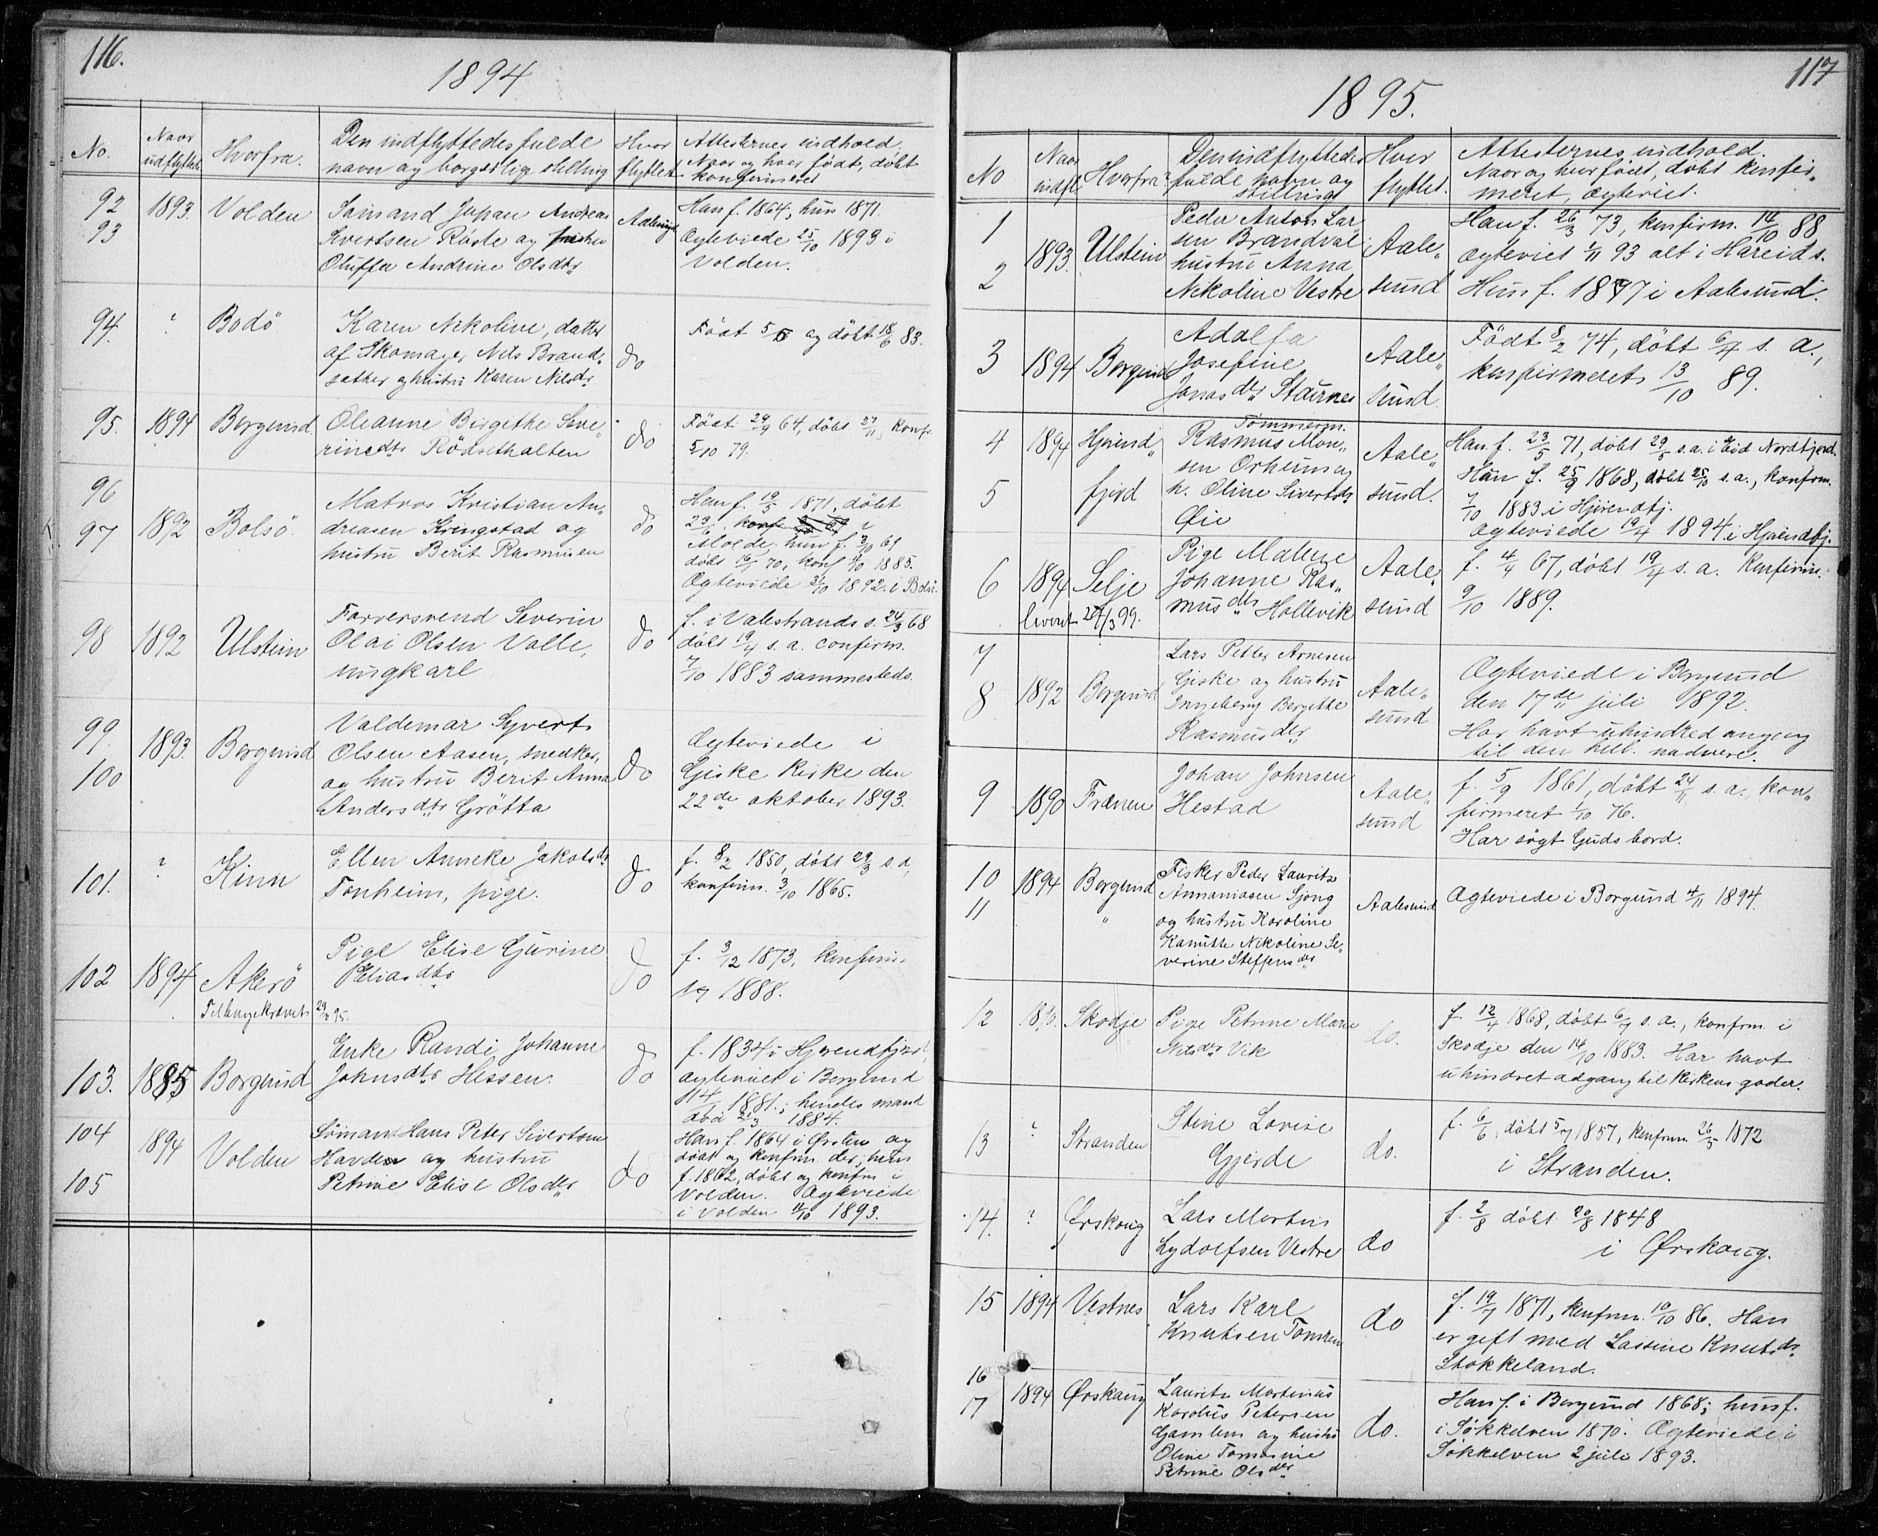 116.
1894
No.
Naar
indflyttet
Hvorfra.
Den indflyttedes fulde
navn og borgerlig stilling
Hvor
flyttet
Attesternes indhold.
Naar og hvor født, døbt
konfirmeret
92
93
1893.
Volden
Sømand Johan Andreas
Sivertsen Røste og hustru
Oluffa Andrine Olsdtr
Aalesund
Han f. 1864, hun 1871.
Ægteviede 25/10 1893 i
Volden.
94.
?
Bodö
Karen Nikoline, datter
af Skomager Nils Brand-
sether og hustru Karen Nilsdtr
do
Født 5/5 og døbt 18/6 83.
95.
1894
Borgund.
Oleanne Birgithe Seve-
rinedtr Rödsethalten
do
Født 29/9 64, døbt 27/11, konf.
5/10 79.
96
97
1892
Bolsö.
Matros Kristian An-
dreasen Kringstad og
hustru Berit Rasmusen
do
Han f. 19/5 1871, døbt
23/6 konf i
Molde. hun f. 3/10 69
døbt 16/1 70, konf 4/10 1885.
Ægteviede 26/10 1892 i Bolsö.
98
1892
Ulstein
Farversvend Severin
Olai Olsen Valle,
ungkarl
do
f. i Valestrands s. 24/3 68
døbt 19/4 s. a. confirm.
7/10 1883 sammesteds.
99.
100
1893.
Borgund
Valdemar Syvert
Olsen Aasen, snedker,
og hustru Berit Anna
Andersdtr Grötta
do
Ægteviede i
Giske Kirke den
22de oktober 1893.
101.
?
Kinn
Ellen Anneke Jakobsdtr
Tonheim, pige.
do
f. 8/2 1850, døbt 29/3 s. a,
konfirm. 3/10 1865.
102
1894
Akerö
Tilbagekrævet 23/3 95.
Pige Elise Gurine
Eliasdtr
do
f. 3/12 1873, konfirm.
1888.
103.
1885
Borgund
Enke Randi Johanne
Johnsdtr Hessen.
do
f. 1834 i Hjørendfjord,
ægteviet i Borgund
1881; hendes mand
død 1884.
104
105
1894
Volden
Sømand Hans Peter Sivertsen
Havden og hustru
Petrine Elise Olsdtr
do
Han f. 1864 i Ørsten og
døbt og konfirm der, hun
f. 1862, døbt og konfirm i
Volden. Ægteviede
i Volden 1893.
117
1895.
No
Naar
indfl.
Hvorfra?
Den indflyttedes
fulde navn og
stilling
Hvor
flyttet.
Attesternes indhold.
Naar og hvor født, døbt konfir-
meret, ægteviet.
1
2
1893.
Ulstein
Peder Anton Lar-
sen Brandval
hustru Anna
Nikoline Vestre
Aale-
sund
Han f. 26/3 73, konfirm. 14/10 88
ægteviet 1/11 93 alt i Hareid s.
Hun f. 1877 i Aalesund.
3
1894
Borgund
Adolfa
Josefine
Jonasdtr Staurnes
Aale-
sund.
Født 8/2 74, døbt 6/4 s. a.,
konfirmeret 13/10 89.
4
5
1894
Hjørend-
fjord
Tømmerm.
Rasmus Mon-
sen Orheim og
h. Oline Sivertsdtr
Øie
Aale-
sund.
Han f. 23/5 71, døbt 29/5 s. a. i Eid Nordfjord.
Hun f. 25/9 1868, døbt 25/10 s. a., konfirm.
7/10 1883 i Hjørendfj.
Ægteviede 19/4 1894 i Hjørendfj.
6
1894
Selje
leveret 27/3 99.
Pige Malene
Johanne Ras-
musdtr Hallevik
Aale-
sund
f. 4/4 67, døbt 19/4 s. a. konfirm.
9/10 1889.
7
8
1892
Borgund
Lars Petter Arnesen
Giske og hustru
Ingeborg Bergitte
Rasmusdtr
Aale-
sund
Ægteviede i Borgund
den 17de juli 1892.
Har havt uhindred adgang
til den hell. nadvere.
9
1890
Frænen
Johan Johnsen
Hestad
Aale-
sund
f. 5/9 1861, døbt 24/11 s. a., kon-
firmeret 1/10 76.
Har søgt Guds bord.
10
11
1894
Borgund
"
Fisker Peder Lauritz
Annaniasen Gjøng
og hustru Karoline
Kanutte Nikoline Se-
verine Steffensdtr
Aalesund
Ægteviede i Borgund 4/11 1894
12
Skodje
Pige Petrine Marie
Nilsdtr Vik
do.
f. 12/4 1868, døbt 6/7 s. a., konfirm i
Skodje den 14/10 1883. Har havt
uhindret adgang til kirkens goder.
13
?
Stranden
Stine Lovise
Gjerde
do.
f. 6/6, døbt 5/7 1857, konfirm. 26/5 1872
i Stranden.
14.
?
Ørskoug
Lars Martin
Lydolfsen Vestre
do
f. 2/8 døbt 20/8 1848
i Ørskoug.
15
1894
Vestnes
Lars Karl
Knutsen Tomren
do
f. 19/7 1871, konfirm. 10/10 86. Han
er gift med Lassine Knutsdtr
Stokkeland.
16
17
1894
Ørskoug
Lauritz Martinus
Karolus Petersen
Gamlem og hustru
Oline Tomasine
Petrine Olsdtr
do.
Han f. i Borgund 1868; hun f.
i Søkkelven 1870. Ægteviede i
Søkkelven 2 juli 1893.